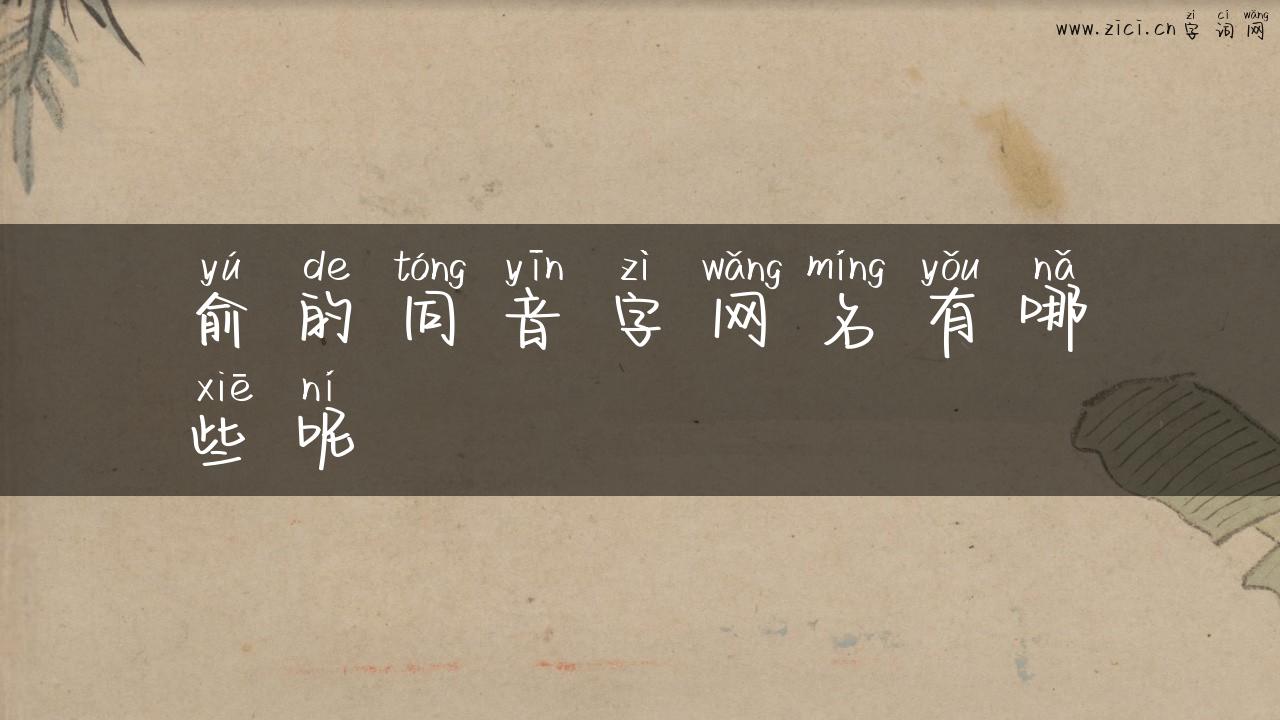 zì cí wǎng
www.zici.cn 字词网
yú de tóng yīn zì wǎng míng yǒu nǎ
俞的同音字网名有哪
xiē ní
些呢